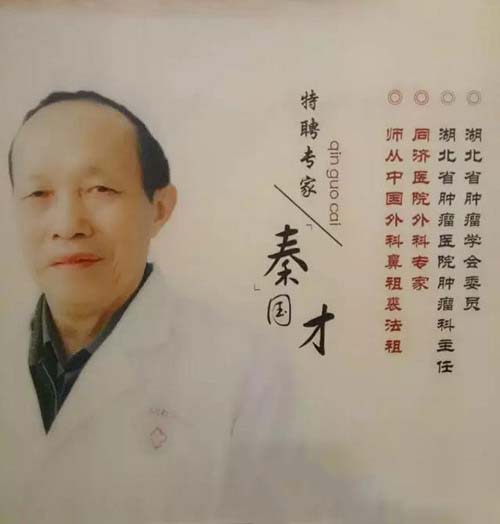 湖北省肿瘤学会委员
湖北省肿瘤医院肿瘤科主任
同济医院外科专家
师从中国外科鼻祖裘法祖
特聘专家
qin guo cai
「秦国」才